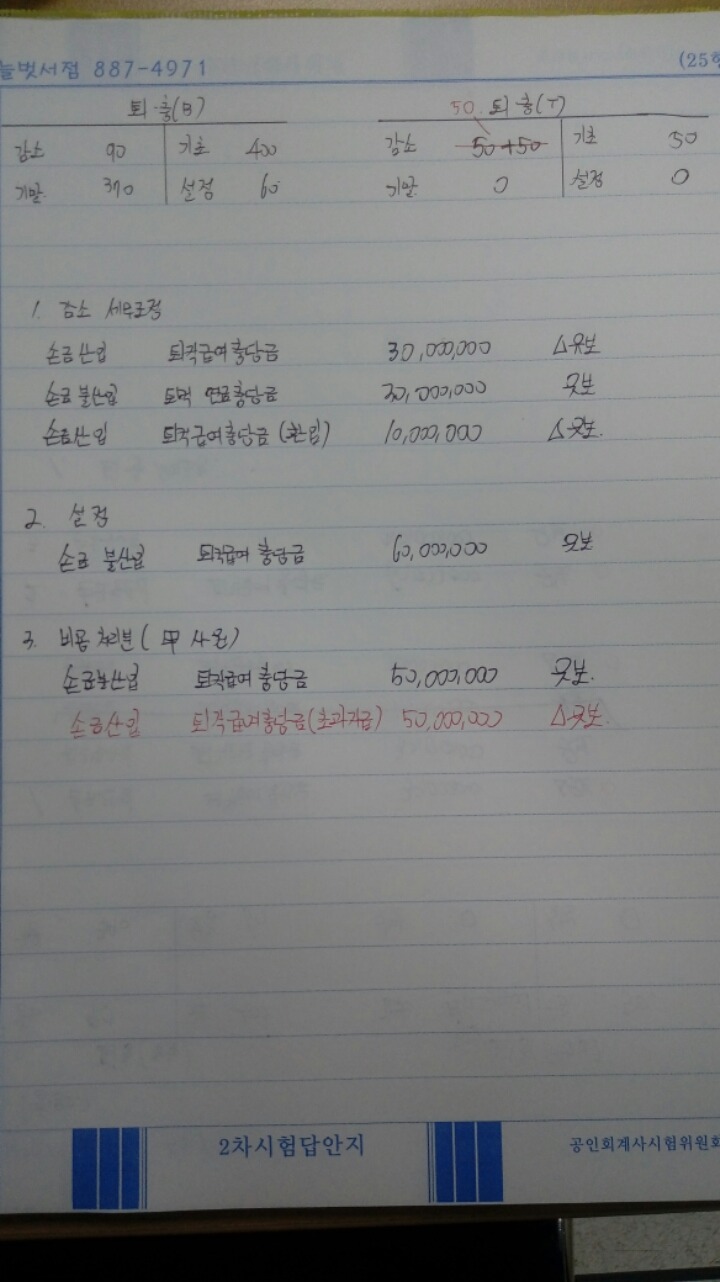 늘벗서점 887-4971 (25행
퇴·충(B) 50. 퇴·충(T)
감소 90 기초 400 감소 50+50 기초 50
기말. 370 설정 60 기말. 0 설정 0
1. 감소 세무조정
손금산입 퇴직급여충당금 30,000,000 △유보
손금불산입 퇴직연금충당금 30,000,000 유보
손금산입 퇴직급여충당금 (환입) 10,000,000 △유보.
2. 설정
손금 불산입 퇴직급여 충당금 60,000,000 유보
3. 비용 처리분 ( 甲 사원)
손금불산입 퇴직급여 충당금 50,000,000 유보.
손금산입 퇴직급여충당금(초과지급) 50,000,000 △유보.
2차시험답안지 공인회계사시험위원회